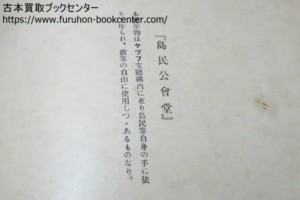 古本買取ブックセンター
https://www.furuhon-bookcenter.com/
『島民公會堂』
本建物はヤップ支廳構內に在り島民等自身の手に依
り作られ、彼等の自由に使用しつゝあるものなり。